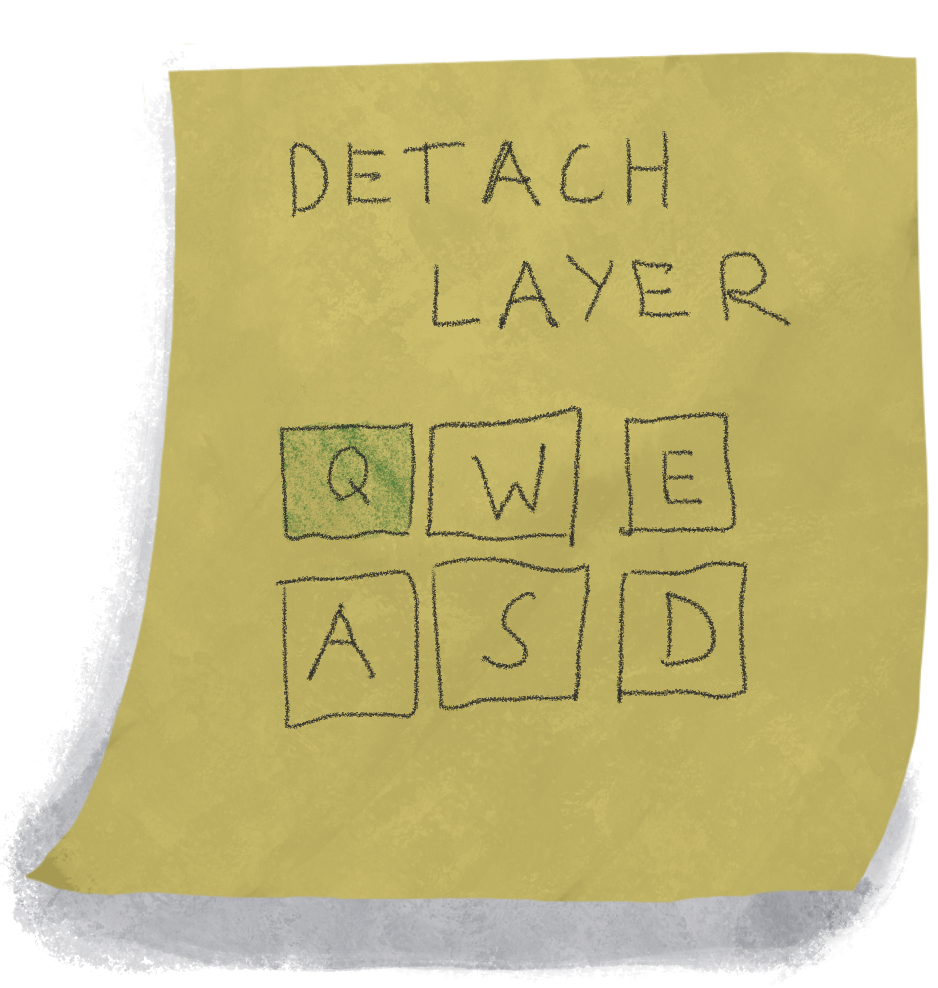 DETACH
LAYER
Q W E
A S D